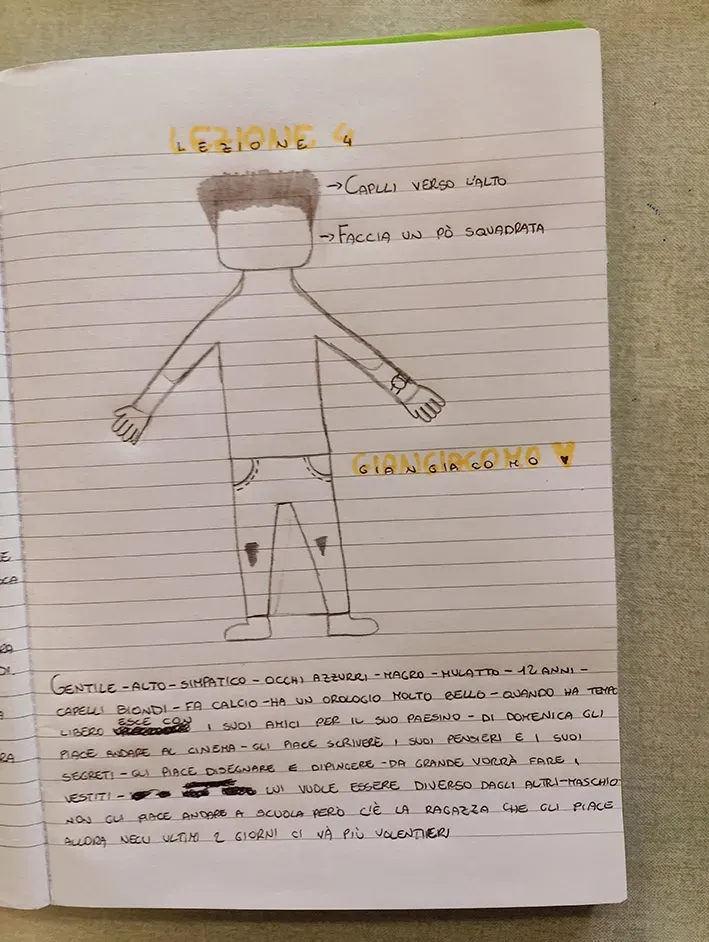 LEZIONE 4
→ CAPLLI VERSO L'ALTO
→ FACCIA UN PÒ SQUADRATA
GIANGIACOMO
GENTILE - ALTO - SIMPATICO - OCCHI AZZURRI - MAGRO - MULATTO - 12 ANNI -
CAPELLI BIONDI - FA CALCIO - HA UN OROLOGIO MOLTO BELLO - QUANDO HA TEMPO
LIBERO ESCE CON I SUOI AMICI PER IL SUO PAESINO - DI DOMENICA GLI
PIACE ANDARE AL CINEMA - GLI PIACE SCRIVERE I SUOI PENSIERI E I SUOI
SEGRETI - GLI PIACE DISEGNARE E DIPINGERE - DA GRANDE VORRÀ FARE I
VESTITI - LUI VUOLE ESSERE DIVERSO DAGLI ALTRI - MASCHIO
NON GLI PIACE ANDARE A SCUOLA PERÒ C'È LA RAGAZZA CHE GLI PIACE
ALLORA NEGLI ULTIMI 2 GIORNI CI VÀ PIÙ VOLENTIERI